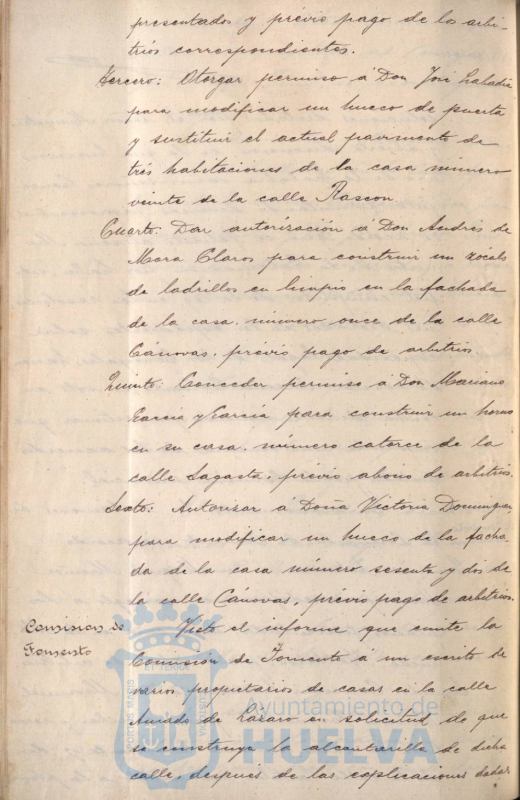 presentados y prévio pago de los arbi-
trios correspondientes.
Tercero: Otorgar permiso á Don José Labadía
para modificar un hueco de puerta
y sustituir el actual pavimento de
trés habitaciones de la casa número
veinte de la calle Rascon
Cuarto: Dar autorización á Don Andrés de
Mora Claros para construir un zócalo
de ladrillos en limpio en la fachada
de la casa número once de la calle
Cánovas, prévio pago de arbitrios
Quinto: Conceder permiso á Don Mariano
García y García para construir un horno
en su casa, número catorce de la
calle Sagasta, prévio abono de arbitrios.
Sexto: Autorizar á Doña Victoria Dominguez,
para modificar un hueco de la facha-
da de la casa número sesenta y dos de
la calle Cánovas, prévio pago de arbitrios.
Comision de
Fomento
Visto el informe que emite la
Comisión de Fomento á un escrito de
varios propietarios de casas en la calle
de Lázaro en solicitud de que
se construya la alcantarilla de dicha
calle, después de las explicaciones dadas
PORTUS MARIS ET TERRAE CUSTODIA
Ayuntamiento de
HUELVA